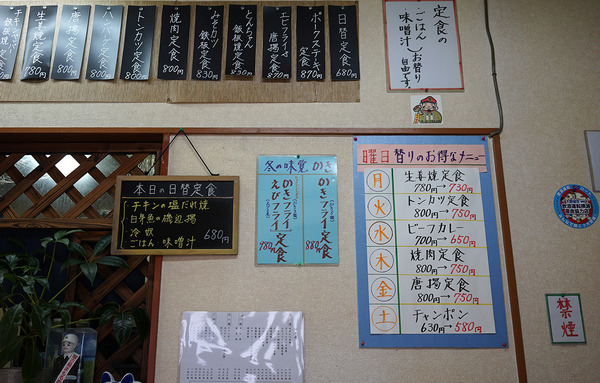 定食の
・ごはん
味噌汁
お替り
自由です。
日替定食
680円
ポークステーキ
定食
870円
エビフライと
唐揚定食
870円
とんちゃん
鉄板焼定食
830円
みそカツ
鉄板定食
830円
焼肉定食
800円
トンカツ定食
800円
ハンバーグ定食
800円
唐揚定食
800円
生姜焼定食
780円
本日の日替定食
チキンの塩だれ焼
白身魚の磯辺揚
冷奴
ごはん 味噌汁
680円
冬の味覚 かき
かきフライ定食
880円
かきフライ
えびフライ
定食
980円
曜日替りのお得なメニュー
月 生姜焼定食
780円→730円
火 トンカツ定食
800円→750円
水 ビーフカレー
700円→650円
木 焼肉定食
800円→750円
金 唐揚定食
800円→750円
土 チャンポン
630円→580円
禁煙